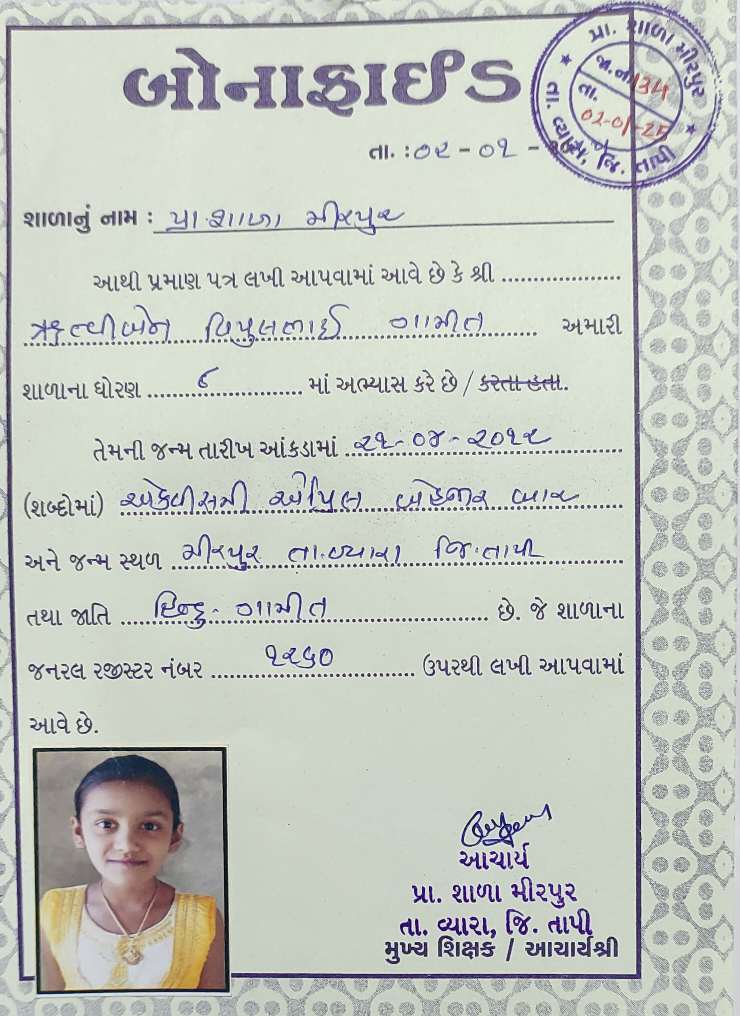 બોનાફાઈડ
પ્રા. શાળા મીરપુર
જા.નં. 134
તા. 02-01-25
તા. વ્યારા, જિ. તાપી
તા. : ૦૨ - ૦૧ -
શાળાનું નામ : પ્રા. શાળા મીરપુર
આથી પ્રમાણ પત્ર લખી આપવામાં આવે છે કે શ્રી ....................
ઋત્વીબેન વિપુલભાઈ ગામીત અમારી
શાળાના ધોરણ ........ ૬ ............ માં અભ્યાસ કરે છે / કરતા હતા.
તેમની જન્મ તારીખ આંકડામાં ૨૧-૦૪-૨૦૧૨
(શબ્દોમાં) એકવીસમી એપ્રિલ બેહજાર બાર
અને જન્મ સ્થળ મીરપુર તા.વ્યારા જિ.તાપી
તથા જાતિ .... હિન્દુ - ગામીત .................... છે. જે શાળાના
જનરલ રજીસ્ટર નંબર ........ ૧૨૬૦ ............ ઉપરથી લખી આપવામાં
આવે છે.
આચાર્ય
પ્રા. શાળા મીરપુર
તા. વ્યારા, જિ. તાપી
મુખ્ય શિક્ષક / આચાર્યશ્રી